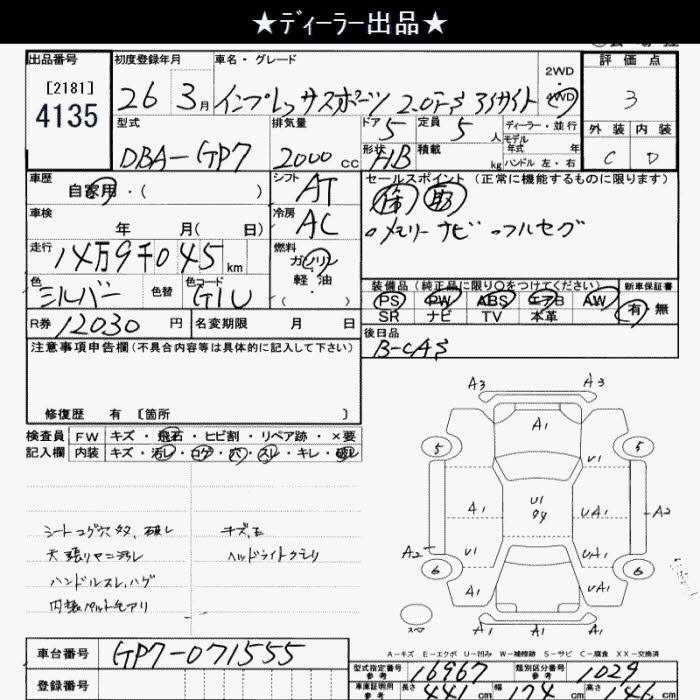 ★ディーラー出品★
出品番号 初度登録年月 車名・グレード 2WD・4WD 評価点
[2181] 4135 26 3月 インプレッサスポーツ 2.0i-S アイサイト 3
型式 排気量 ドア 5 定員 5人 ディーラー・並行 外装 内装
DBA-GP7 2000cc 形状 HB 積載 kg モデル年式 年 ハンドル 左・右 C D
車歴 自家用・( ) シフト AT セールスポイント (正常に機能するものに限ります)
車検 年 月( 日) 冷房 AC
。メモリーナビ 。フルセグ
走行 14万9千045km 燃料 ガソリン・軽油 ( )
色 シルバー 色替 色コード G1U 装備品(純正品に限り○をつけてください) 新車保証書
PS PW ABS エアB AW 有・無
SR ナビ TV 本革
R券 12030円 名変期限 月 日 後日品
注意事項申告欄(不具合内容等は具体的に記入して下さい) B-CAS
修復歴 有 [箇所 ]
検査員 FW キズ・飛石・ヒビ割・リペア跡・×要
記入欄 内装 キズ・汚レ・コゲ・穴・スレ・キレ・破レ
A3 A3
A1
5 5
U1
A1 U1 UA1 A2
A2 U1 UA1
6 6
A1 UA1
A1 A1 A1
スペア
シートコゲ穴
天張りヤニ汚レ
ハンドルスレ、ハゲ
ヘッドライトクモリ
A=キズ E=エクボ U=凹み W=補修跡 S=サビ C=腐食 XX=交換済
車台番号 GP7-071555
型式指定番号 参考 16967 類別区分番号 参考 1029
登録番号
車庫証明用 参考 長さ 441cm 幅 174cm 高さ 146cm